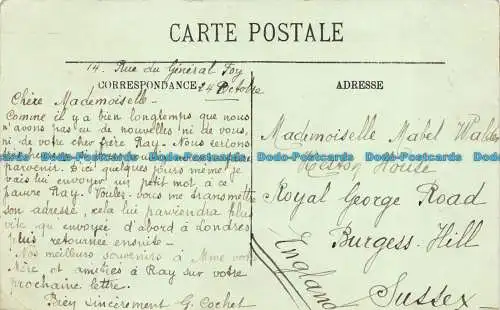 CARTE POSTALE
14. Rue du Général Foy
CORRESPONDANCE 24 Octobre
ADRESSE
Chère Mademoiselle -
Comme il y a bien longtemps que nous
n'avons pas eu de nouvelles ni de vous,
ni de votre cher frère Ray. Nous serions
parvenir. D'ici quelques jours même je
vais lui envoyer un petit mot à ce
pauvre Ray. Voulez-vous me transmettre
son adresse, cela lui parviendra plus
vite qu envoyée d'abord à Londres
puis retournée ensuite -
Nos meilleurs souvenirs à Mme votre
Mère et amitiés à Ray sur votre
prochaine lettre.
Bien sincèrement G. Cochet
Mademoiselle Mabel Walder
House
Royal George Road
Burgess-Hill
Sussex
England
Bodo-Postcards Bodo-Postcards Bodo-Postcards
Bodo-Postcards Bodo-Postcards Bodo-Postcards